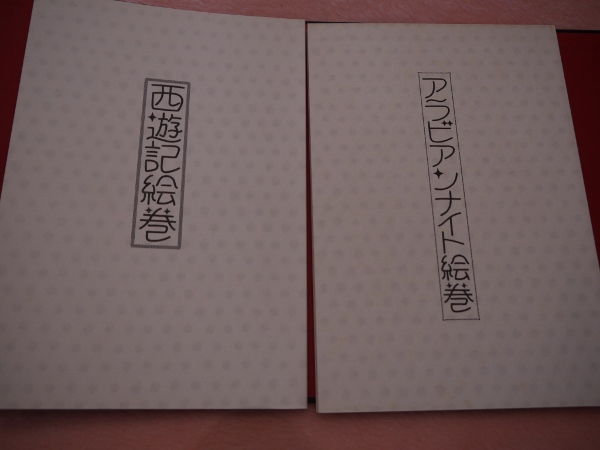 西遊記絵巻
アラビアンナイト絵巻